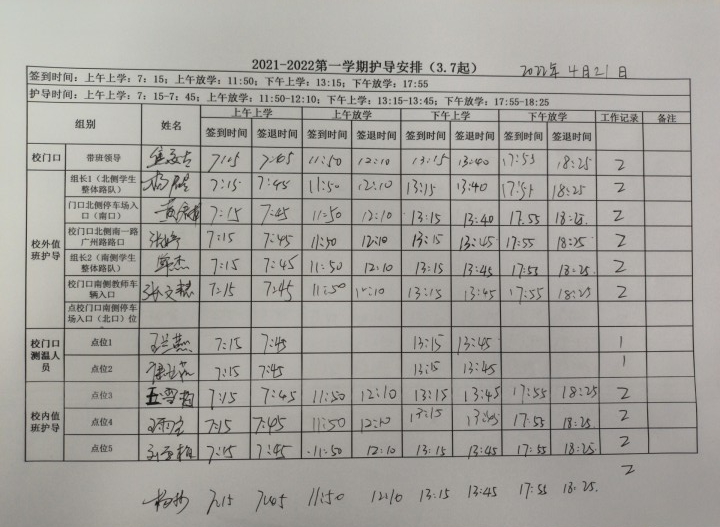 2021-2022第一学期护导安排（3.7起） 2022年4月21日
签到时间：上午上学：7：15；上午放学：11:50；下午上学：13:15；下午放学：17:55
护导时间：上午上学：7：15-7：45；上午放学：11:50-12:10；下午上学：13:15-13:45；下午放学：17:55-18:25
组别 姓名 上午上学 上午放学 下午上学 下午放学 工作记录 备注
签到时间 签退时间 签到时间 签退时间 签到时间 签退时间 签到时间 签退时间
校门口 带班领导 7:15 7:45 11:50 12:10 13:15 13:40 17:55 18:25 2
校外值班护导
组长1（北侧学生整体路队） 7:15 7:45 11:50 12:10 13:15 13:40 17:51 18:25 2
门口北侧停车场入口（南口） 7:15 7:45 11:50 12:10 13:15 13:40 17.55 18:25 2
校门口北侧南一路广州路路口 7:15 7:45 11:50 12:10 13:15 13:45 17:55 18:25 2
组长2（南侧学生整体路队） 7:15 7:45 11:50 12:10 13:15 13:45 17:55 18:25 2
校门口南侧教师车辆入口 7:15 7:45 11:50 12:10 13:15 13:45 17:55 18:25 2
点校门口南侧停车场入口（北口）位
校门口测温人员
点位1 7:15 7:45 13:15 13:45 1
点位2 7:15 7:45 13:15 13:45 1
校内值班护导
点位3 7:15 7:45 11:50 12:10 13:15 13:45 17:55 18:25 2
点位4 7:15 7:45 11:50 12:10 13:15 13:45 17:55 18:25 2
点位5 7:15 7:45 11:50 12:10 13:15 13:45 17:55 18:25 2
7:15 7:45 11:50 12:10 13:15 13:45 17:55 18:25 2